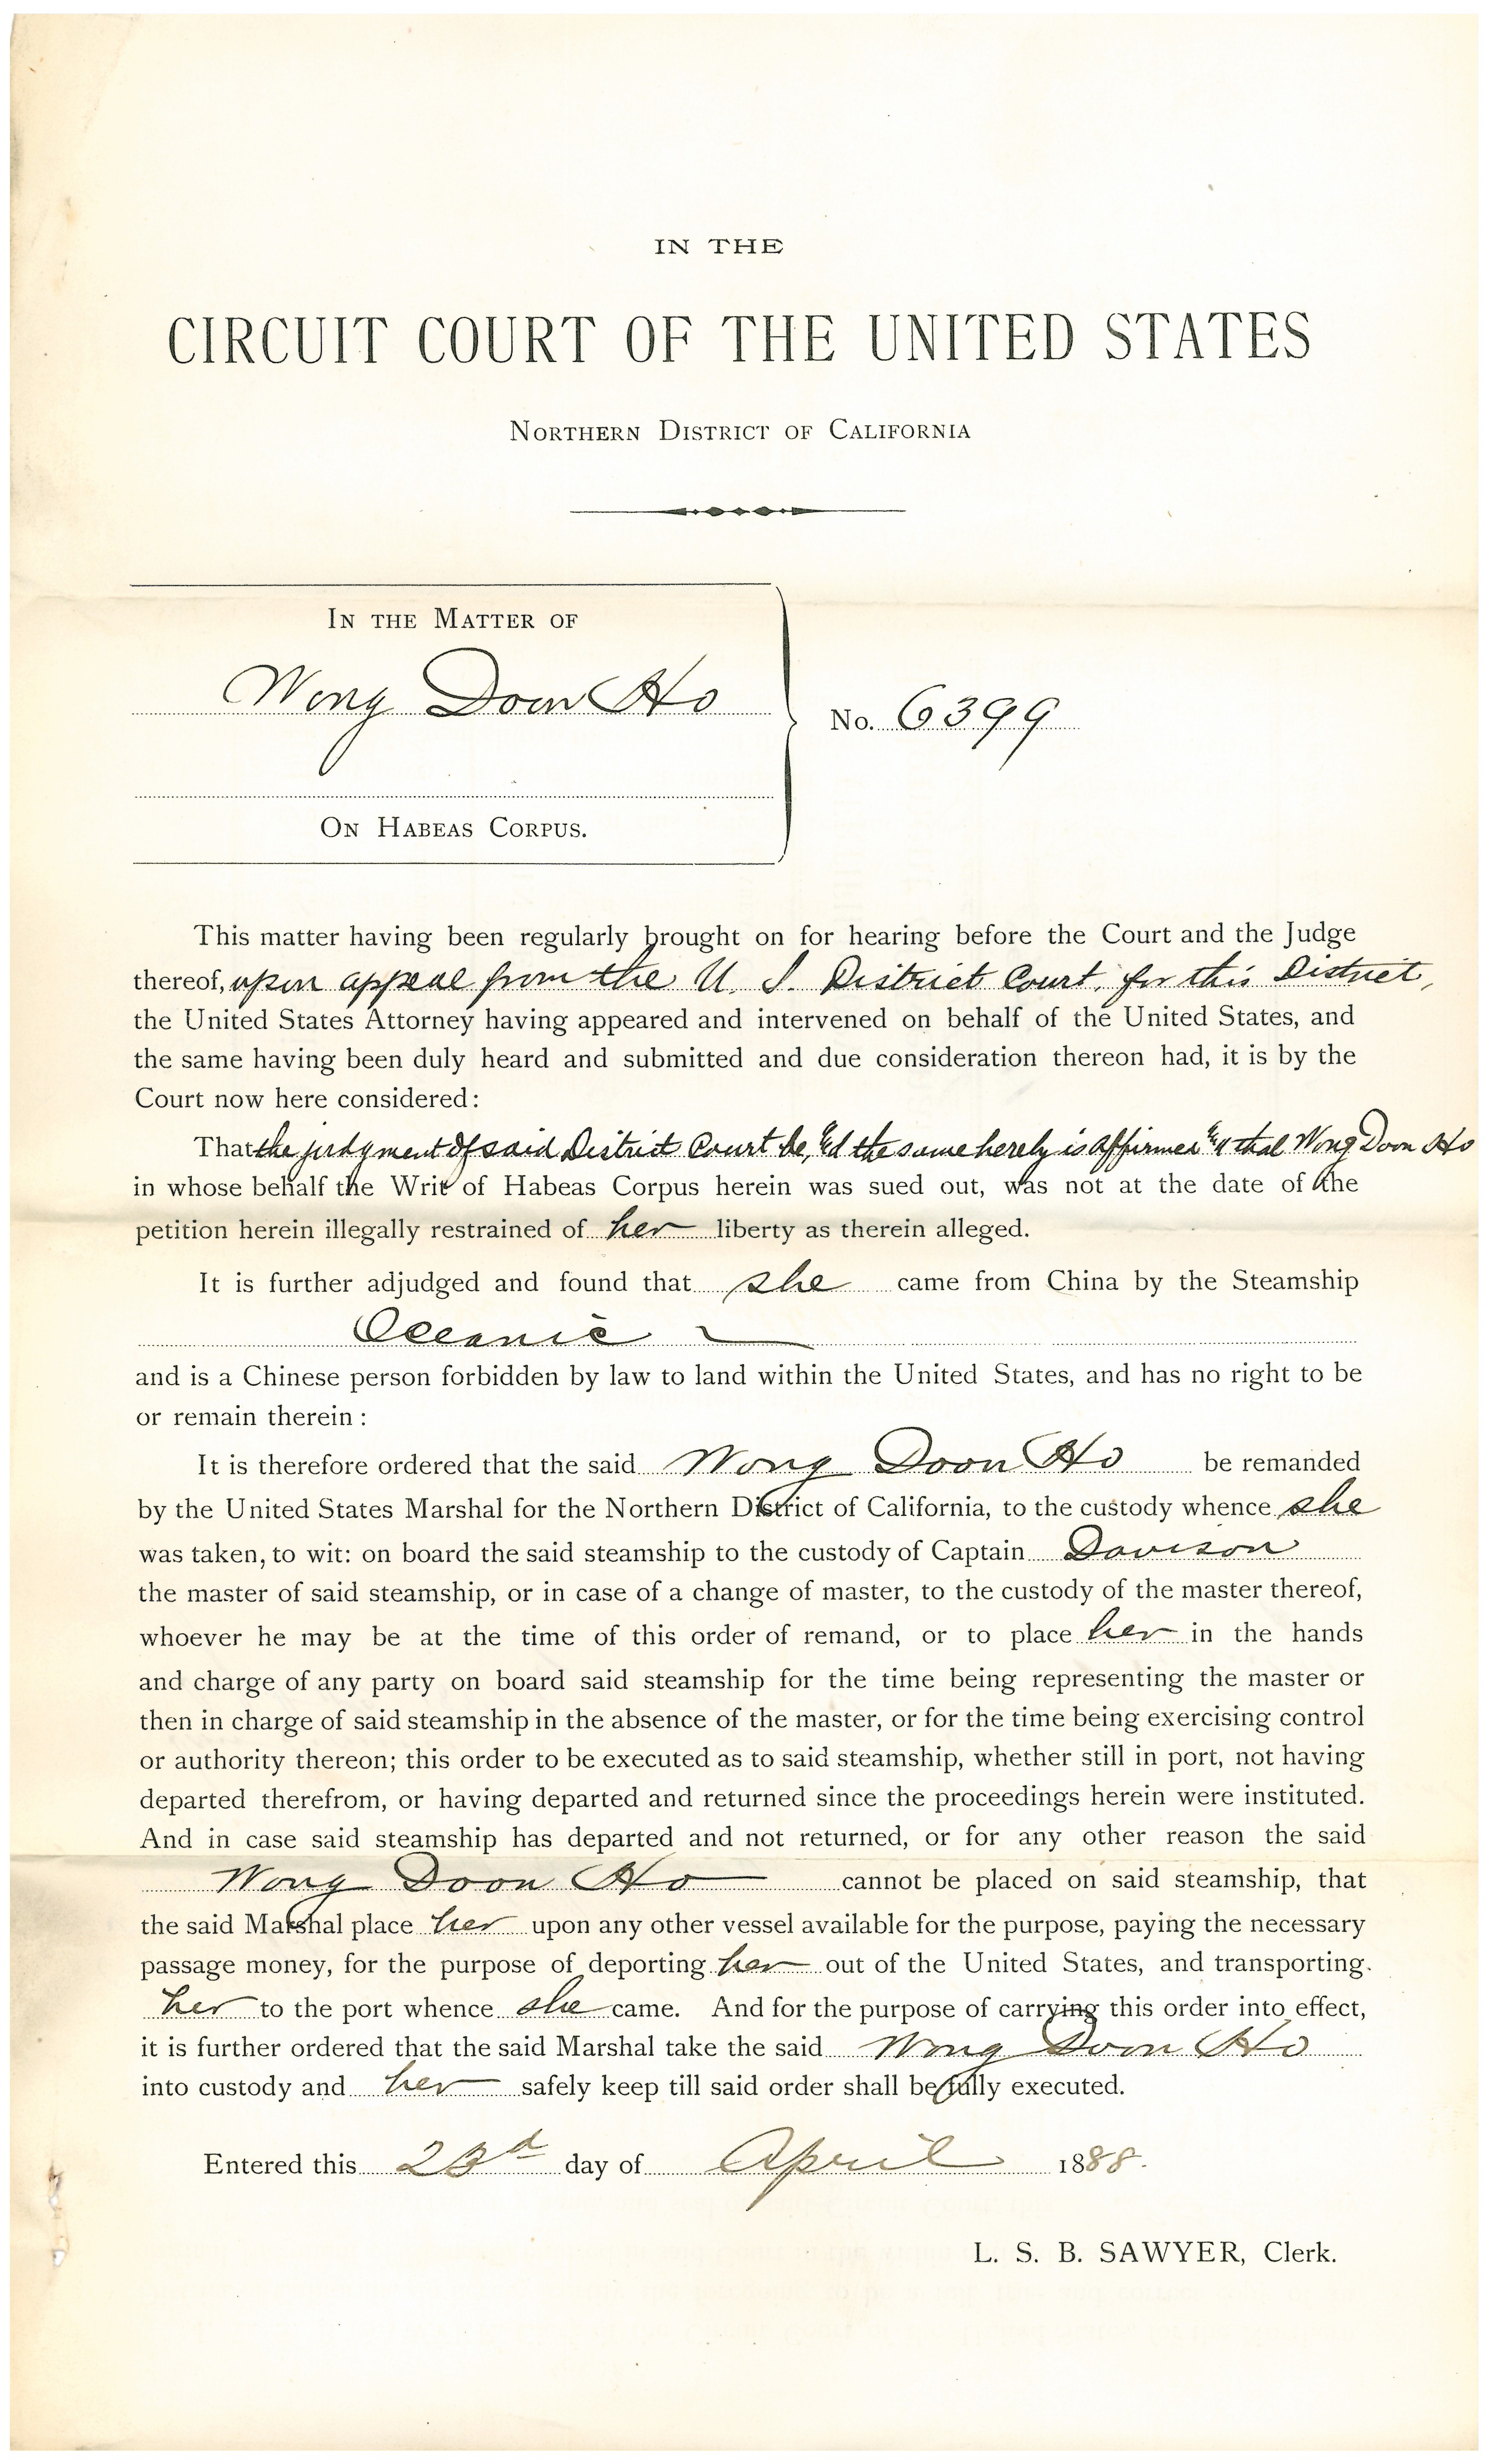 IN THE
CIRCUIT COURT OF THE UNITED STATES
NORTHERN DISTRICT OF CALIFORNIA
IN THE MATTER OF
Wong Doon Ho
No. 6399
ON HABEAS CORPUS.
This matter having been regularly brought on for hearing before the Court and the Judge
thereof, upon appeal from the U. S. District Court, for this District,
the United States Attorney having appeared and intervened on behalf of the United States, and
the same having been duly heard and submitted and due consideration thereon had, it is by the
Court now here considered:
That the judgment of said District Court be, & the same hereby is affirmed & that Wong Doon Ho
in whose behalf the Writ of Habeas Corpus herein was sued out, was not at the date of the
petition herein illegally restrained of her liberty as therein alleged.
It is further adjudged and found that she came from China by the Steamship
Oceanic
and is a Chinese person forbidden by law to land within the United States, and has no right to be
or remain therein:
It is therefore ordered that the said Wong Doon Ho be remanded
by the United States Marshal for the Northern District of California, to the custody whence she
was taken, to wit: on board the said steamship to the custody of Captain Davison
the master of said steamship, or in case of a change of master, to the custody of the master thereof,
whoever he may be at the time of this order of remand, or to place her in the hands
and charge of any party on board said steamship for the time being representing the master or
then in charge of said steamship in the absence of the master, or for the time being exercising control
or authority thereon; this order to be executed as to said steamship, whether still in port, not having
departed therefrom, or having departed and returned since the proceedings herein were instituted.
And in case said steamship has departed and not returned, or for any other reason the said
Wong Doon Ho cannot be placed on said steamship, that
the said Marshal place her upon any other vessel available for the purpose, paying the necessary
passage money, for the purpose of deporting her out of the United States, and transporting
her to the port whence she came. And for the purpose of carrying this order into effect,
it is further ordered that the said Marshal take the said Wong Doon Ho
into custody and her safely keep till said order shall be fully executed.
Entered this 23d day of April 1888.
L. S. B. SAWYER, Clerk.